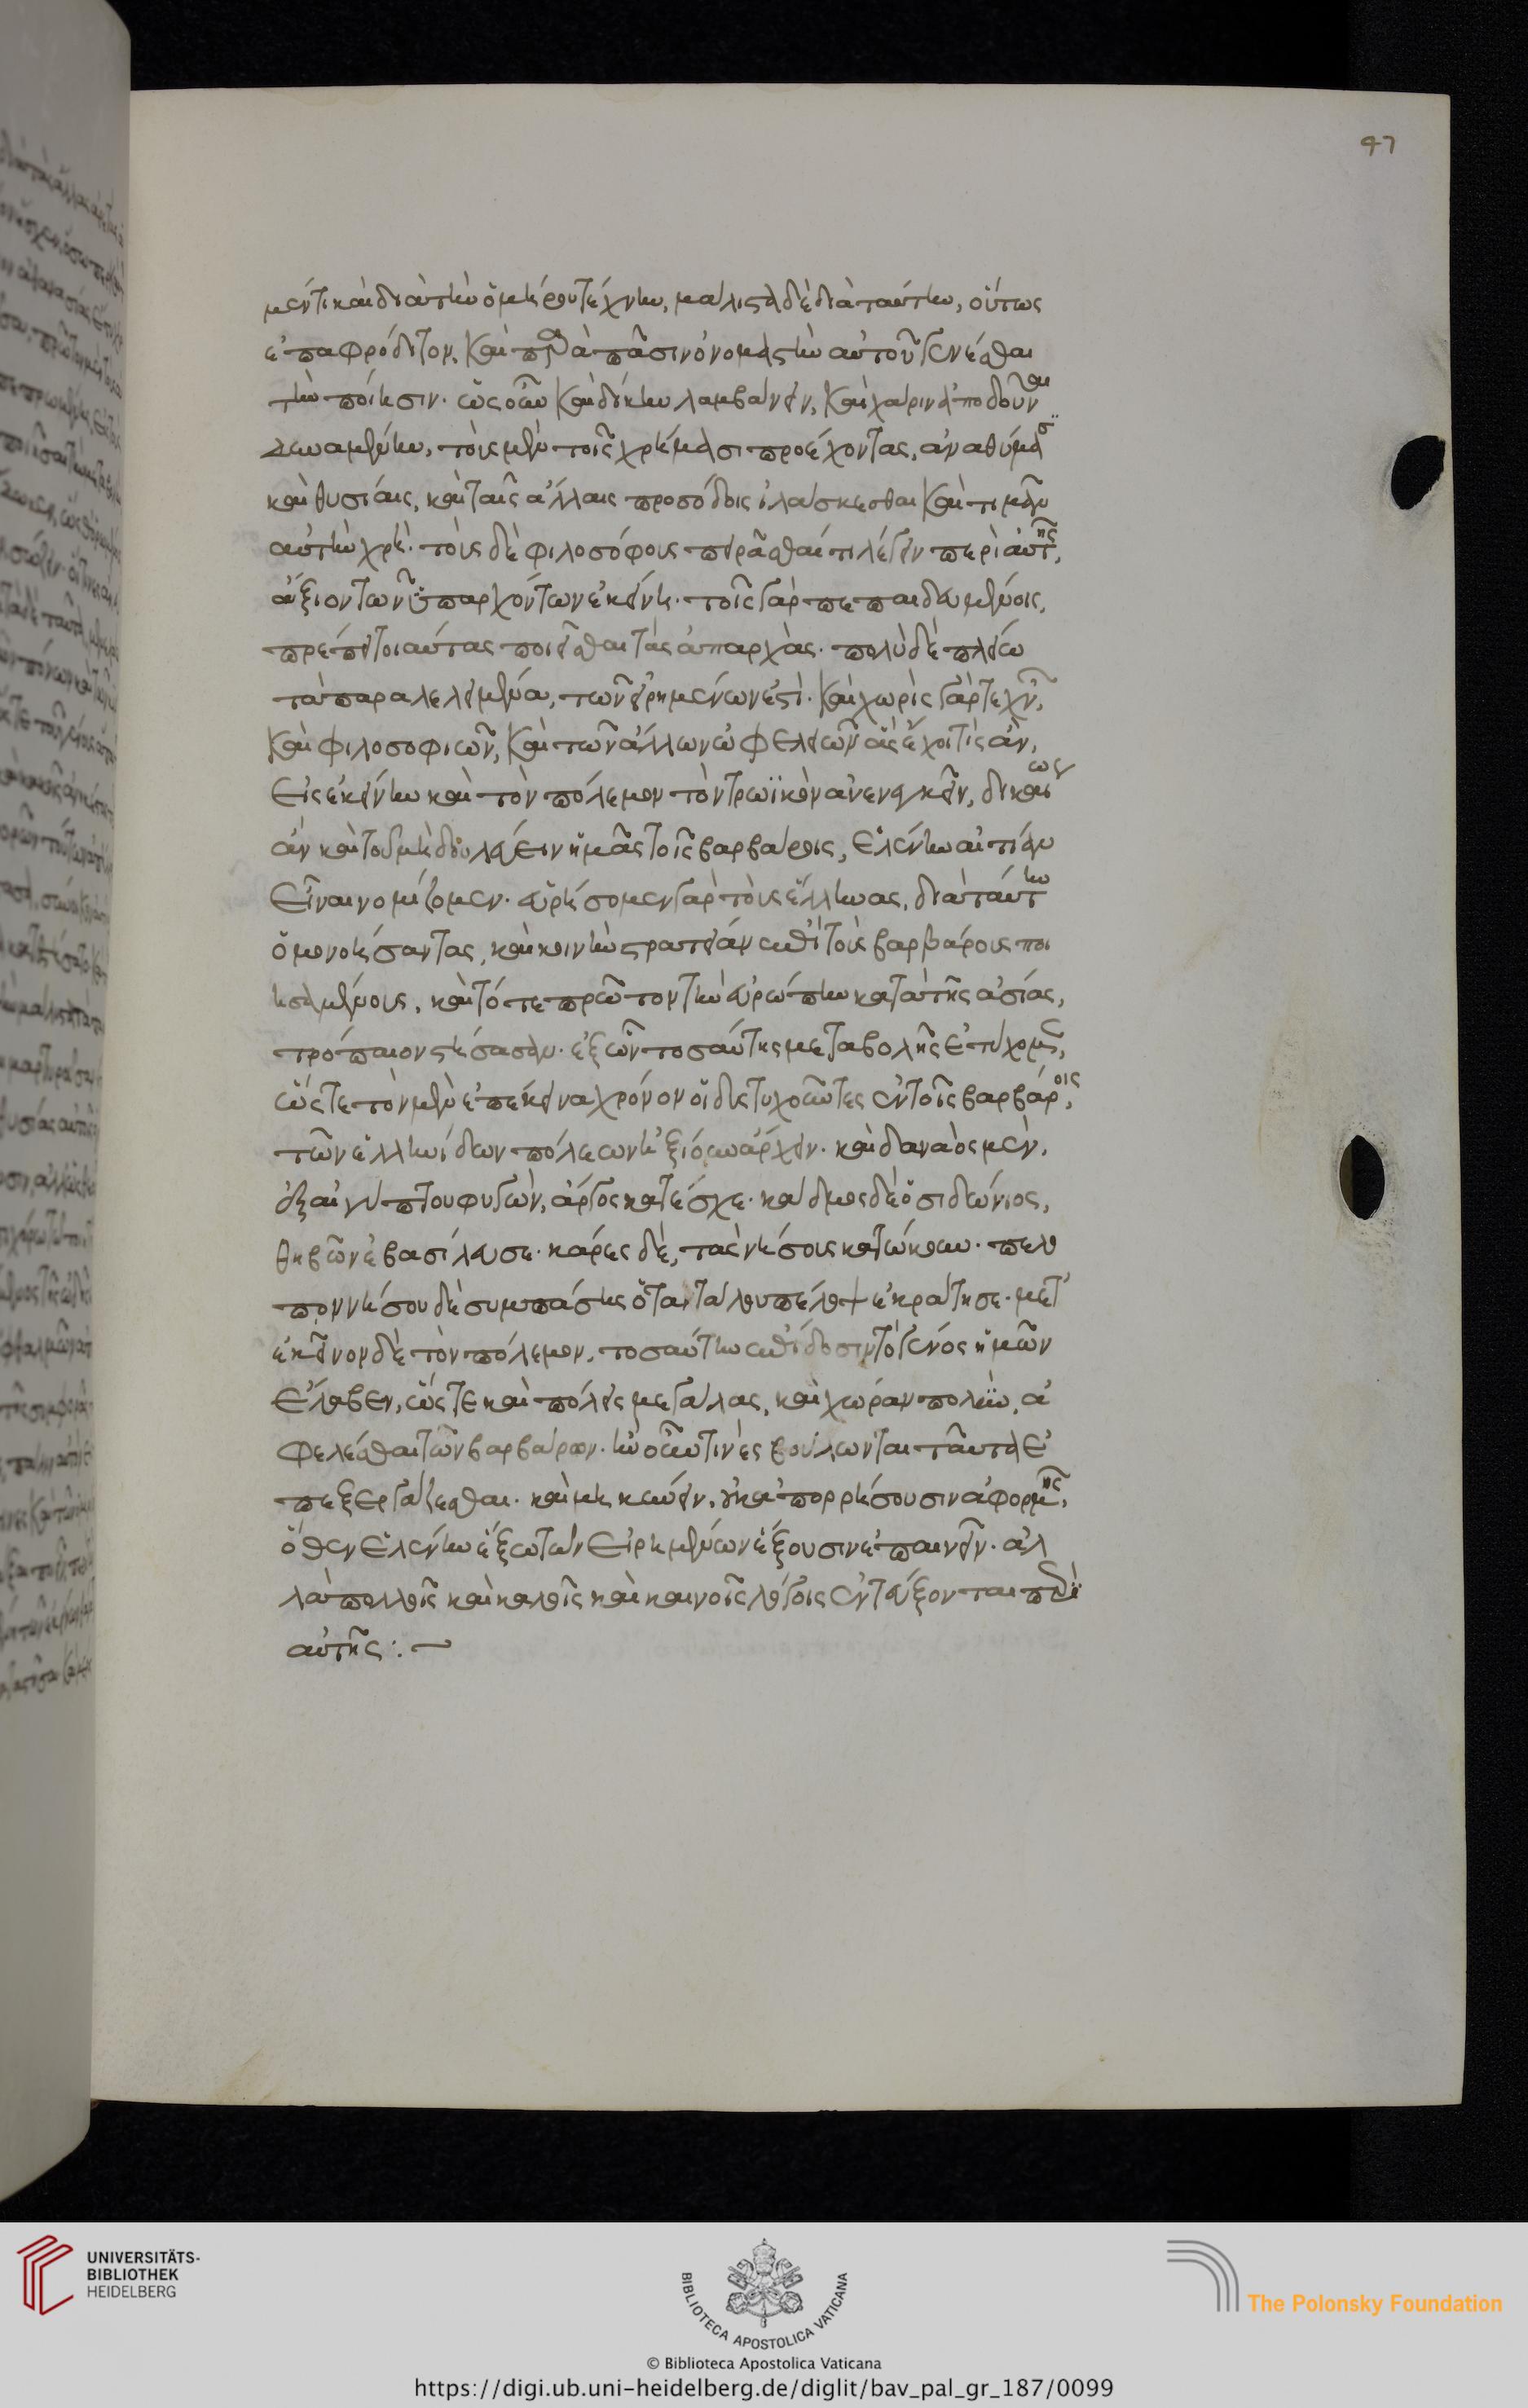 μέν τι καὶ διὰ τὴν ὁμήρου τέχνην, μάλιστα δὲ διὰ ταύτην, οὕτως
ἐπαφρόδιτον, καὶ παρὰ πᾶσιν ὀνομαστὴν αὐτοῦ γενέσθαι
τὴν ποίησιν. ὡς οὖν καὶ δίκην λαμβάνειν, καὶ χάριν ἀποδοῦναι
δυναμένην, τοὺς μὲν τοῖς χρήμασι προέχοντας, ἀναθήμασι
καὶ θυσίαις, καὶ ταῖς ἄλλαις προσόδοις ἱλάσκεσθαι καὶ τιμᾶν
αὐτὴν χρή. τοὺς δὲ φιλοσόφους πειρᾶσθαί τι λέγειν περὶ αὐτῆς,
ἄξιον τῶν ὑπαρχόντων ἐκείνη. τοῖς γὰρ πεπαιδευμένοις,
πρέπει τοιαύτας ποιεῖσθαι τὰς ἀπαρχάς. πολὺ δὲ πλείω
τὰ παραλελειμμένα, τῶν εἰρημένων ἐστί. καὶ χωρὶς γὰρ τεχνῶν,
καὶ φιλοσοφιῶν, καὶ τῶν ἄλλων ὠφελειῶν ἃς ἔχοι τὶς ἂν,
εἰς ἐκείνην καὶ τὸν πόλεμον τὸν τρωϊκὸν ἀνενεγκεῖν, δικαίως
ἂν καὶ τοῦ μὴ δουλεύειν ἡμᾶς τοῖς βαρβάροις, ἑλένην αἰτίαν
εἶναι νομίζομεν. εὑρήσομεν γὰρ τοὺς ἕλληνας, διὰ ταύτην
ὁμονοήσαντας, καὶ κοινὴν στρατείαν ἐπὶ τοὺς βαρβάρους ποι
ησαμένους, καὶ τότε πρῶτον τὴν εὐρώπην κατὰ τῆς ἀσίας,
τρόπαιον στήσασαν. ἐξ ὧν τοσαύτης μεταβολῆς ἐτύχομεν,
ὥστε τὸν μὲν ἐπέκεινα χρόνον οἱ δυστυχοῦντες ἐν τοῖς βαρβάροις,
τῶν ἑλληνίδων πόλεων ἠξίουν ἄρχειν. καὶ δαναὸς μὲν,
ἐξ αἰγύπτου φυγὼν, ἄργος κατέσχε. κάδμος δὲ ὁ σιδώνιος,
θηβῶν ἐβασίλευσε. κάρες δὲ, τὰς νήσους κατώκουν. πελο
ποννήσου δὲ συμπάσης ὁ ταντάλου πέλοψ ἐκράτησε. μετ'
ἐκεῖνον δὲ τὸν πόλεμον, τοσαύτην ἐπίδοσιν τὸ γένος ἡμῶν
ἔλαβεν, ὥστε καὶ πόλεις μεγάλας, καὶ χώραν πολλὴν, ἀ
φελέσθαι τῶν βαρβάρων. ἢν οὖν τινὲς βούλωνται ταῦτα ἐ
πεξεργάζεσθαι. καὶ μηκύνειν, οὐκ ἀπορρήσουσιν ἀφορμῆς,
ὅθεν ἑλένην ἔξω τῶν εἰρημένων ἕξουσιν ἐπαινεῖν. ἀλ
λὰ πολλοῖς καὶ καλοῖς καὶ καινοῖς λόγοις ἐντεύξονται περὶ
αὐτῆς :
47
UNIVERSITÄTS-
BIBLIOTHEK
HEIDELBERG
BIBLIOTECA APOSTOLICA VATICANA
© Biblioteca Apostolica Vaticana
The Polonsky Foundation
https://digi.ub.uni-heidelberg.de/diglit/bav_pal_gr_187/0099